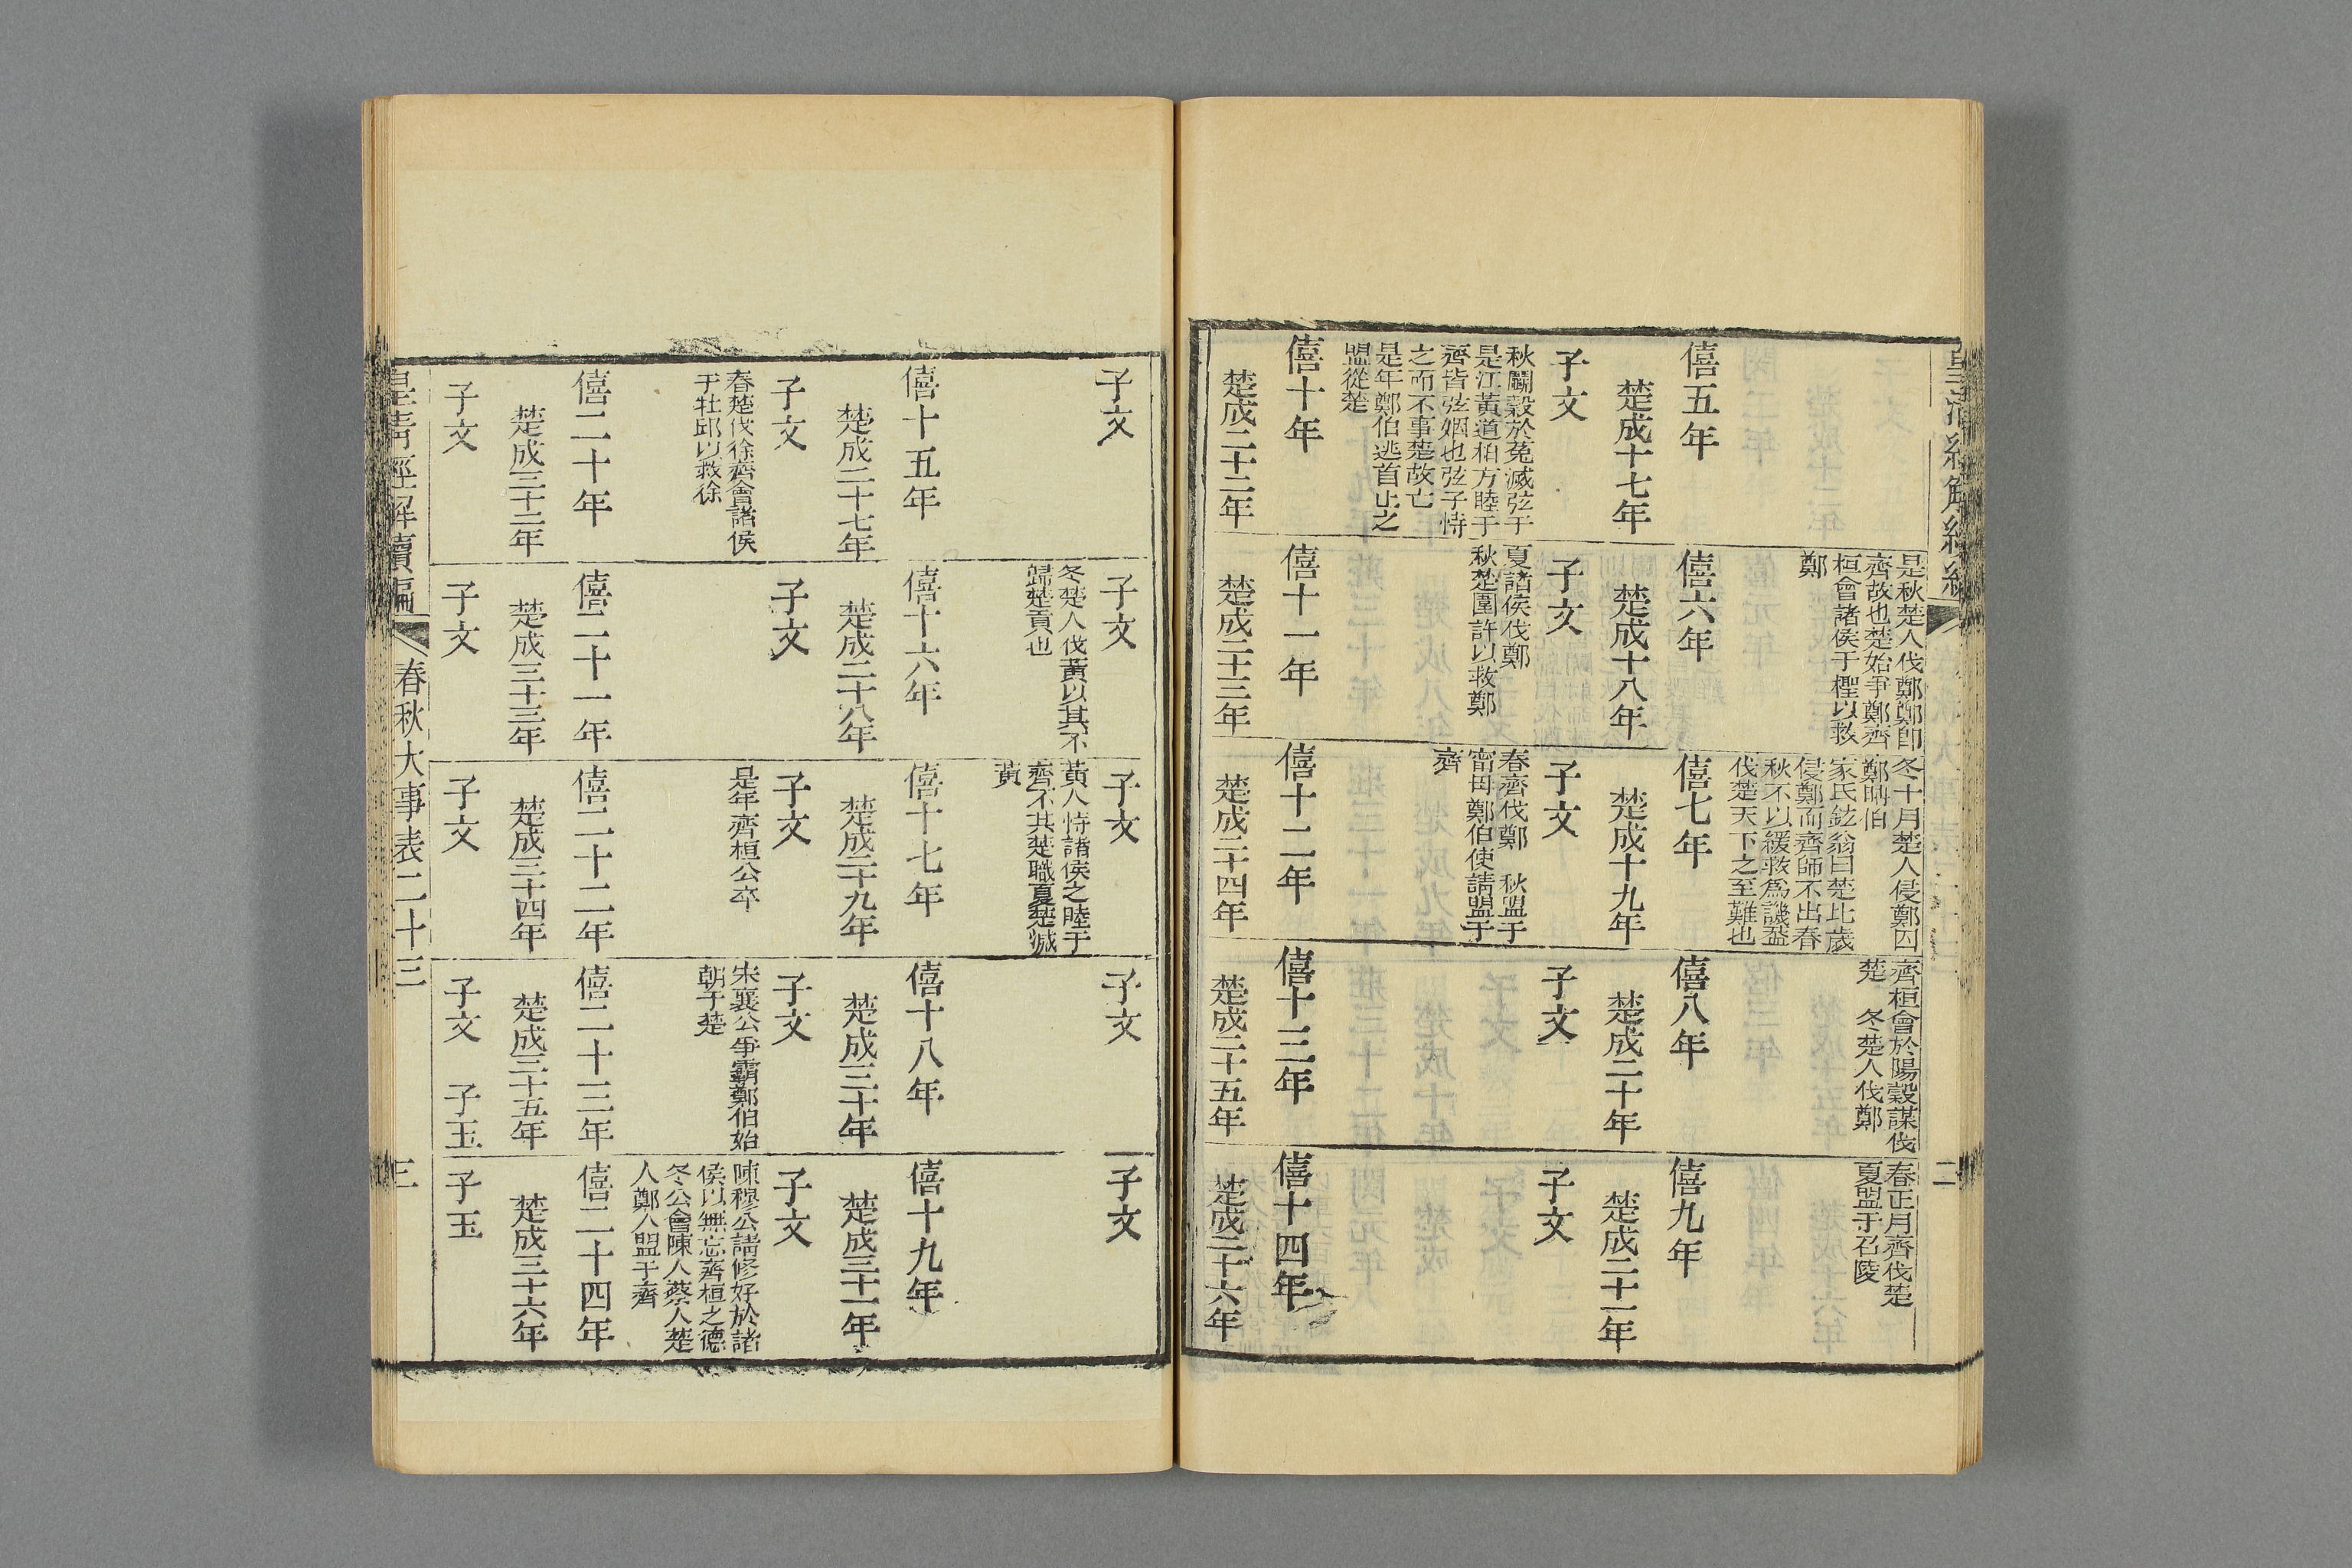 皇清經解續編
二
是秋楚人伐鄭鄭即
齊故也楚始爭鄭齊
桓會諸侯于檉以救
鄭
冬十月楚人侵鄭囚
鄭聃伯
家氏鉉翁曰楚比歲
侵鄭而齊師不出春
秋不以緩救爲譏蓋
伐楚天下之至難也
齊桓會於陽穀謀伐
楚　冬楚人伐鄭
春正月齊伐楚
夏盟于召陵
僖五年
楚成十七年
子文
秋鬭穀於菟滅弦于
是江黃道柏方睦于
齊皆弦姻也弦子恃
之而不事楚故亡
是年鄭伯逃首止之
盟從楚
僖六年
楚成十八年
子文
夏諸侯伐鄭
秋楚圍許以救鄭
僖七年
楚成十九年
子文
春齊伐鄭　秋盟于
甯母鄭伯使請盟于
齊
僖八年
楚成二十年
子文
僖九年
楚成二十一年
子文
僖十年
楚成二十二年
僖十一年
楚成二十三年
僖十二年
楚成二十四年
僖十三年
楚成二十五年
僖十四年
楚成二十六年
子文
子文
冬楚人伐黃以其不
歸楚貢也
子文
黃人恃諸侯之睦于
齊不共楚職夏楚滅
黃
子文
子文
僖十五年
楚成二十七年
子文
春楚伐徐齊會諸侯
于牡邱以救徐
僖十六年
楚成二十八年
子文
僖十七年
楚成二十九年
子文
是年齊桓公卒
僖十八年
楚成三十年
子文
宋襄公爭霸鄭伯始
朝于楚
僖十九年
楚成三十一年
子文
陳穆公請修好於諸
侯以無忘齊桓之德
冬公會陳人蔡人楚
人鄭人盟于齊
僖二十年
楚成三十二年
子文
僖二十一年
楚成三十三年
子文
僖二十二年
楚成三十四年
子文
僖二十三年
楚成三十五年
子文　子玉
僖二十四年
楚成三十六年
子玉
皇清經解續編
春秋大事表二十三
三